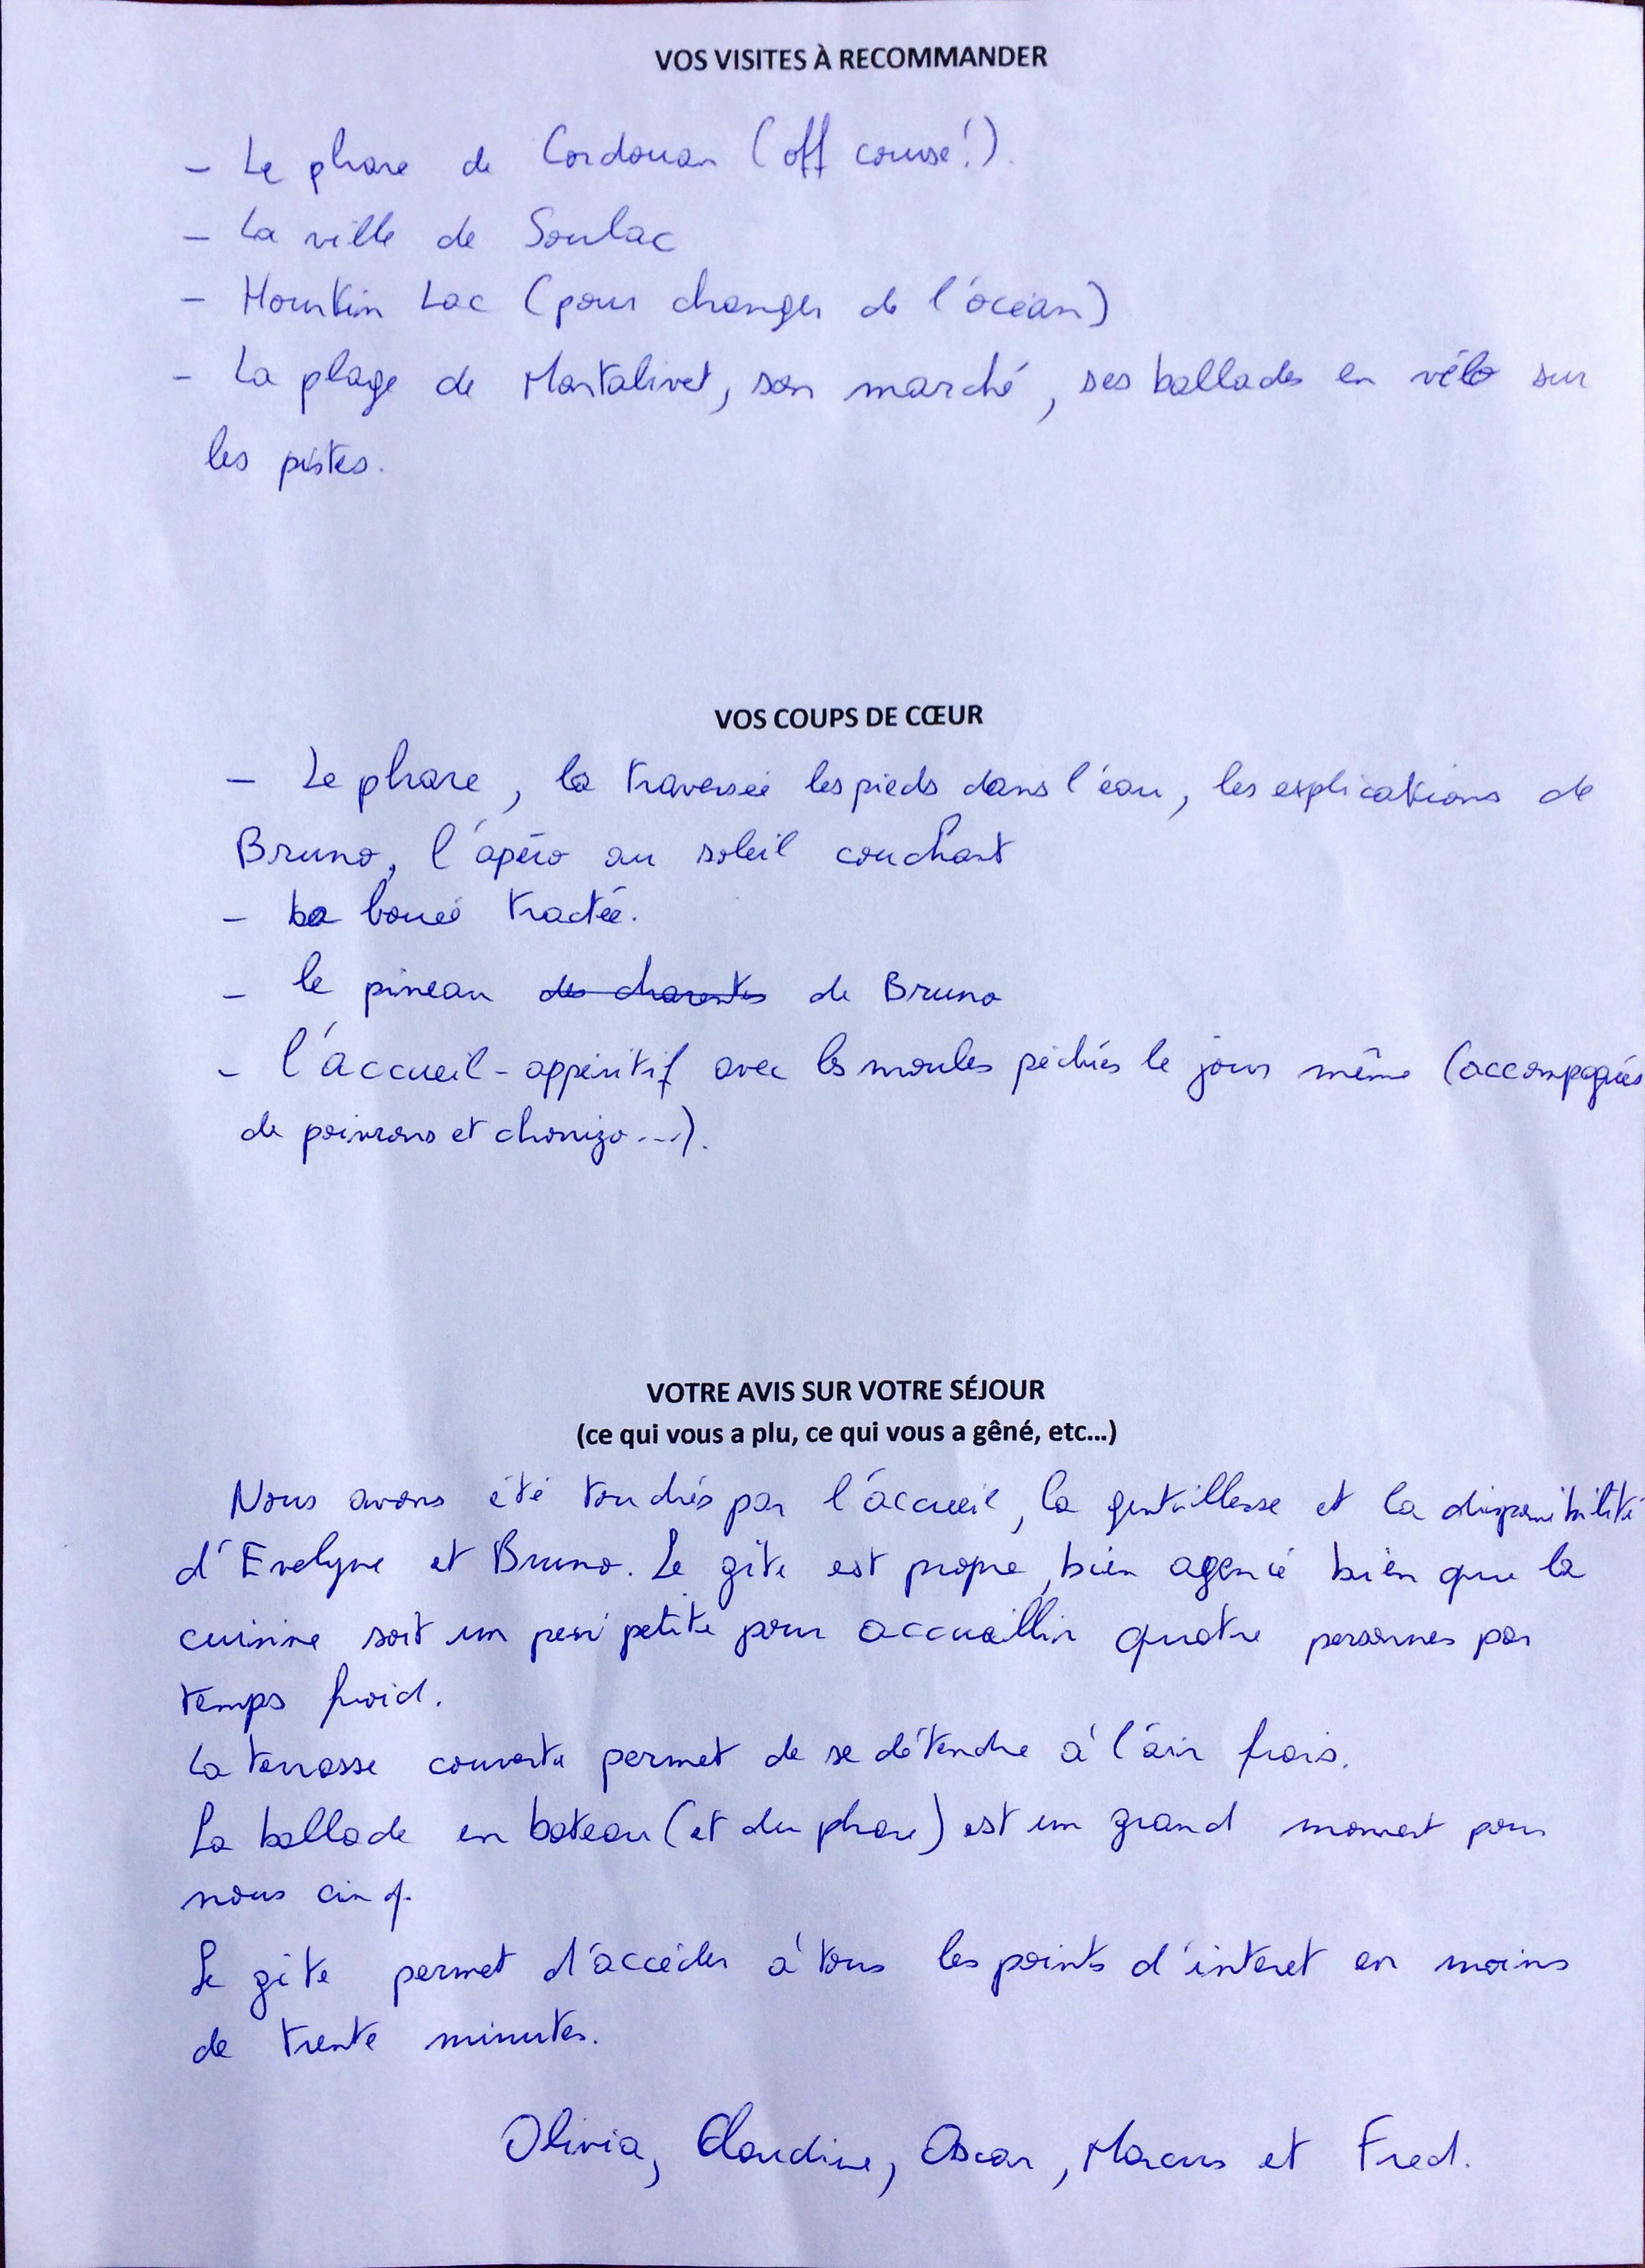 VOS VISITES À RECOMMANDER
- Le phare de Cordouan (off course!).
- La ville de Soulac
- Hourtin Lac (pour changer de l'océan)
- La plage de Montalivet, son marché, ses ballades en vélo sur
les pistes.
VOS COUPS DE CŒUR
- Le phare, la traversée les pieds dans l'eau, les explications de
Bruno, l'apéro au soleil couchant
- La bouée tractée.
- le pineau des charentes de Bruno
- l'accueil-appéritif avec les moules péchées le jour même (accompagnées
de poivrons et chorizo...).
VOTRE AVIS SUR VOTRE SÉJOUR
(ce qui vous a plu, ce qui vous a gêné, etc...)
Nous avons été touchés par l'accueil, la gentillesse et la disponibilité
d'Evelyne et Bruno. Le gîte est propre, bien agencé bien que la
cuisine soit un peu petite pour accueillir quatre personnes par
temps froid.
La terrasse couverte permet de se détendre à l'air frais.
La ballade en bateau (et du phare) est un grand moment pour
nous cinq.
Le gîte permet d'accéder à tous les points d'intéret en moins
de trente minutes.
Olivia, Claudine, Oscar, Marcus et Fred.